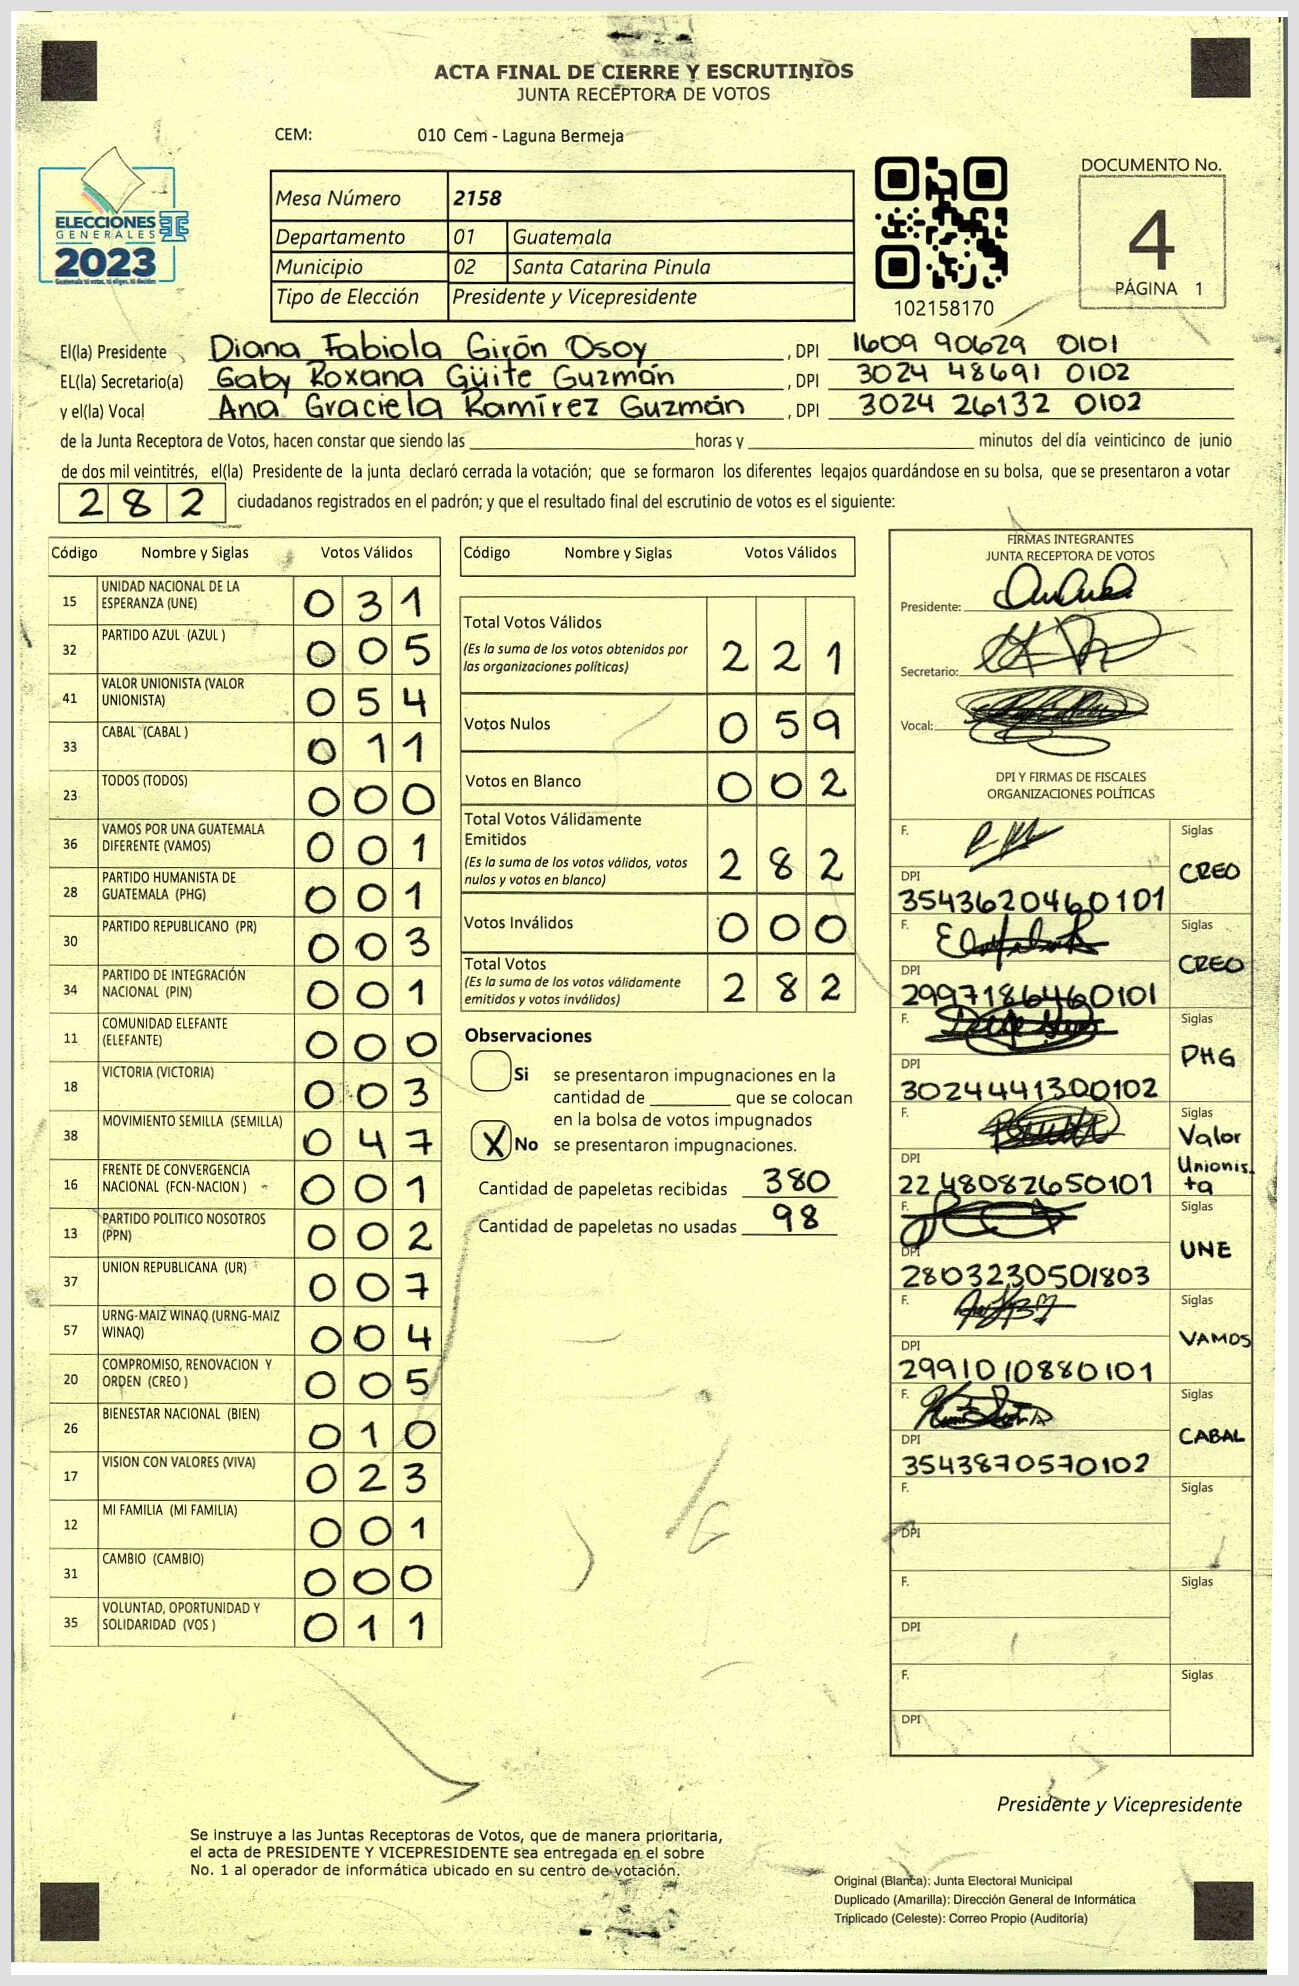 ACTA FINAL DE CIERRE Y ESCRUTINIOS
JUNTA RECEPTORA DE VOTOS
CEM: 010 Cem - Laguna Bermeja
ELECCIONES
GENERALES
2023
Guatemala tú votas, tú eliges, tú decides
Mesa Número 2158
Departamento 01 Guatemala
Municipio 02 Santa Catarina Pinula
Tipo de Elección Presidente y Vicepresidente
102158170
DOCUMENTO No.
4
PÁGINA 1
El(la) Presidente Diana Fabiola Girón Osoy , DPI 1609 90629 0101
EL(la) Secretario(a) Gaby Roxana Güite Guzmán , DPI 3024 48691 0102
y el(la) Vocal Ana Graciela Ramírez Guzmán , DPI 3024 26132 0102
de la Junta Receptora de Votos, hacen constar que siendo las horas y minutos del día veinticinco de junio
de dos mil veintitrés, el(la) Presidente de la junta declaró cerrada la votación; que se formaron los diferentes legajos quardándose en su bolsa, que se presentaron a votar
282 ciudadanos registrados en el padrón; y que el resultado final del escrutinio de votos es el siguiente:
Código Nombre y Siglas Votos Válidos
15 UNIDAD NACIONAL DE LA
ESPERANZA (UNE) 031
32 PARTIDO AZUL (AZUL ) 005
41 VALOR UNIONISTA (VALOR
UNIONISTA) 054
33 CABAL (CABAL ) 011
23 TODOS (TODOS) 000
36 VAMOS POR UNA GUATEMALA
DIFERENTE (VAMOS) 001
28 PARTIDO HUMANISTA DE
GUATEMALA (PHG) 001
30 PARTIDO REPUBLICANO (PR) 003
34 PARTIDO DE INTEGRACIÓN
NACIONAL (PIN) 001
11 COMUNIDAD ELEFANTE
(ELEFANTE) 000
18 VICTORIA (VICTORIA) 003
38 MOVIMIENTO SEMILLA (SEMILLA) 047
16 FRENTE DE CONVERGENCIA
NACIONAL (FCN-NACION ) 001
13 PARTIDO POLITICO NOSOTROS
(PPN) 002
37 UNION REPUBLICANA (UR) 007
57 URNG-MAIZ WINAQ (URNG-MAIZ
WINAQ) 004
20 COMPROMISO, RENOVACION Y
ORDEN (CREO ) 005
26 BIENESTAR NACIONAL (BIEN) 010
17 VISION CON VALORES (VIVA) 023
12 MI FAMILIA (MI FAMILIA) 001
31 CAMBIO (CAMBIO) 000
35 VOLUNTAD, OPORTUNIDAD Y
SOLIDARIDAD (VOS ) 011
Código Nombre y Siglas Votos Válidos
Total Votos Válidos
(Es la suma de los votos obtenidos por
las organizaciones políticas) 221
Votos Nulos 059
Votos en Blanco 002
Total Votos Válidamente
Emitidos
(Es la suma de los votos válidos, votos
nulos y votos en blanco) 282
Votos Inválidos 000
Total Votos
(Es la suma de los votos válidamente
emitidos y votos inválidos) 282
Observaciones
Si se presentaron impugnaciones en la
cantidad de que se colocan
en la bolsa de votos impugnados
X No se presentaron impugnaciones.
Cantidad de papeletas recibidas 380
Cantidad de papeletas no usadas 98
FIRMAS INTEGRANTES
JUNTA RECEPTORA DE VOTOS
Presidente:
Secretario:
Vocal:
DPI Y FIRMAS DE FISCALES
ORGANIZACIONES POLÍTICAS
F. Siglas
CREO
DPI
3543620460101
F. Siglas
CREO
DPI
2997186460101
F. Siglas
PHG
DPI
3024441300102
F. Siglas
Valor
Unionis.
ta
DPI
2248082650101
F. Siglas
UNE
DPI
2803230501803
F. Siglas
VAMOS
DPI
2991010880101
F. Siglas
CABAL
DPI
3543870570102
F. Siglas
DPI
F. Siglas
DPI
F. Siglas
DPI
Presidente y Vicepresidente
Se instruye a las Juntas Receptoras de Votos, que de manera prioritaria,
el acta de PRESIDENTE Y VICEPRESIDENTE sea entregada en el sobre
No. 1 al operador de informática ubicado en su centro de votación.
Original (Blanca): Junta Electoral Municipal
Duplicado (Amarilla): Dirección General de Informática
Triplicado (Celeste): Correo Propio (Auditoría)